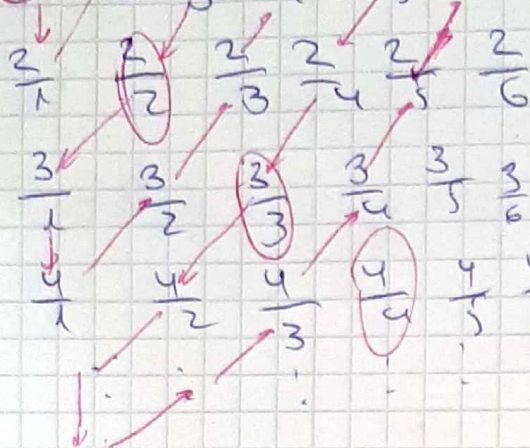 2/1 2/2 2/3 2/4 2/5 2/6
3/1 3/2 3/3 3/4 3/5 3/6
4/1 4/2 4/3 4/4 4/5